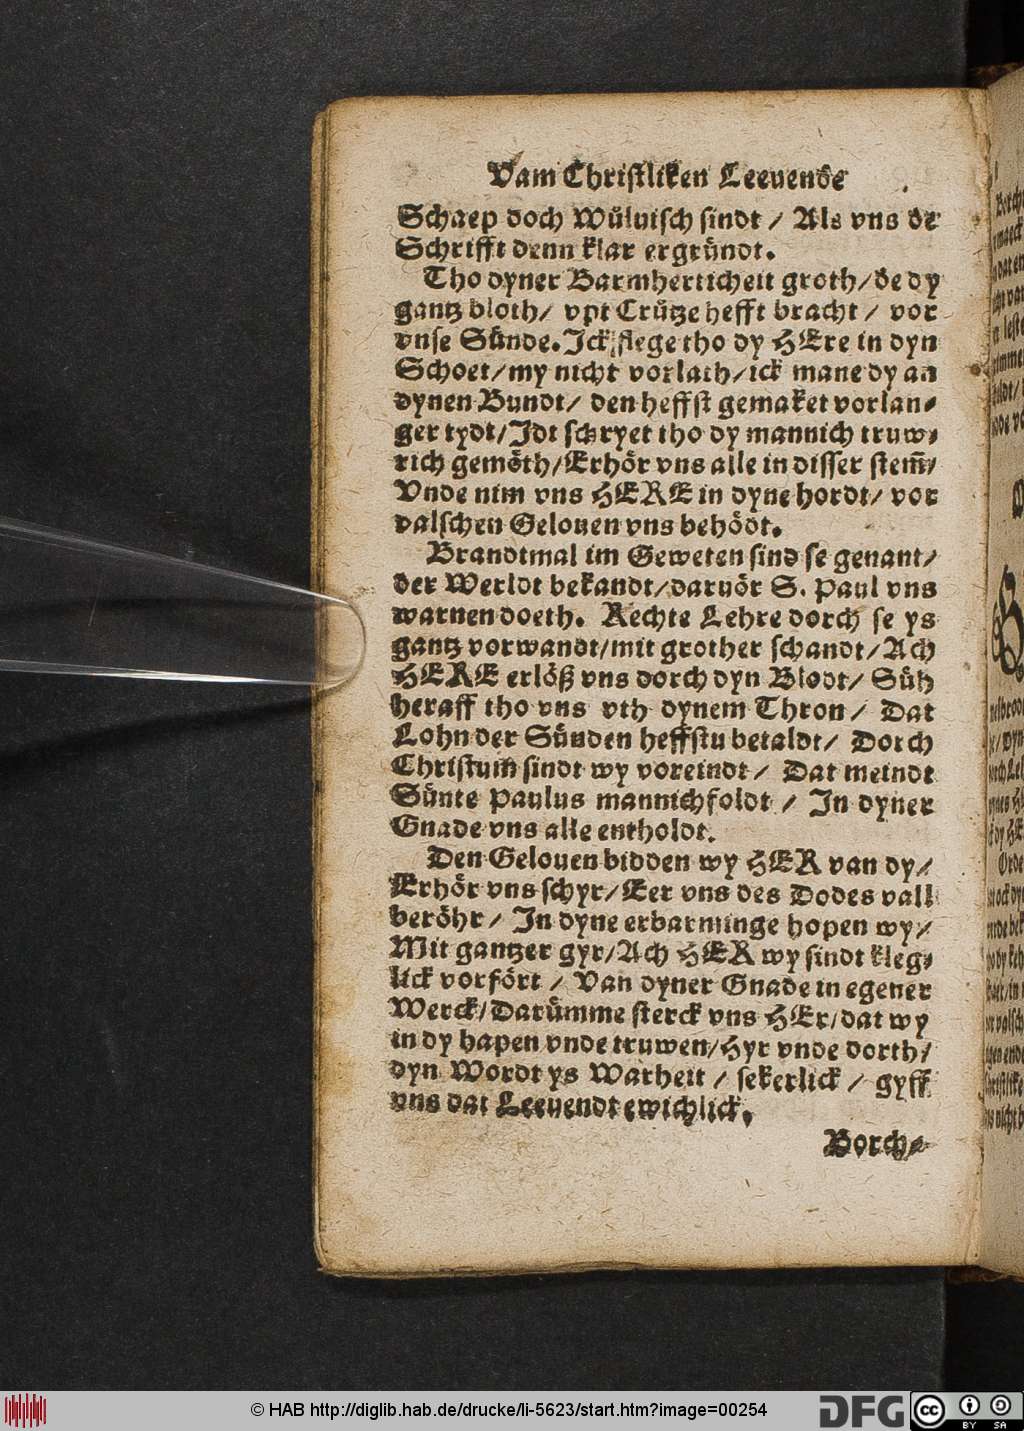 Vam Christliken Leeuende
Schaep doch Wüluisch sindt / Als vns de
Schrifft denn klar ergründt.
Tho dyner Barmherticheit groth/de dy
gantz bloth/ vpt Crütze hefft bracht / vor
vnse Sünde. Ick flege tho dy HEre in dyn
Schoet/my nicht vorlath/ick mane dy an
dynen Bundt/ den heffst gemaket vorlan-
ger tydt/Idt schryet tho dy mannich truw-
rich gemöth/Erhör vns alle in disser stem̄/
Vnde nim vns HERE in dyne hordt/ vor
valschen Gelouen vns behödt.
Brandtmal im Geweten sind se genant/
der Werldt bekandt/daruör S. Paul vns
warnen doeth. Rechte Lehre dorch se ys
gantz vorwandt/mit grother schandt/Ach
HERE erlöß vns dorch dyn Blodt/ Süh
heraff tho vns vth dynem Thron/ Dat
Lohn der Sünden heffstu betaldt/ Dorch
Christum̄ sindt wy voreindt / Dat meindt
Sünte Paulus mannichfoldt / In dyner
Gnade vns alle entholdt.
Den Gelouen bidden wy HER van dy/
Erhör vns schyr/Eer vns des Dodes vall
beröhr / In dyne erbarminge hopen wy/
Mit gantzer gyr/Ach HER wy sindt kleg-
lick vorfört / Van dyner Gnade in egener
Werck/Darümme sterck vns HEr/dat wy
in dy hapen vnde truwen/Hyr vnde dorth/
dyn Wordt ys Warheit / sekerlick / gyff
vns dat Leeuendt ewichlick.
Borch-
© HAB http://diglib.hab.de/drucke/li-5623/start.htm?image=00254
DFG
cc
BY SA